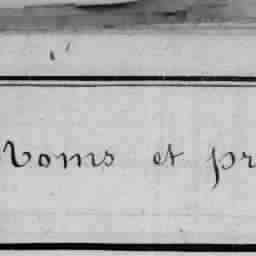 Noms et pr